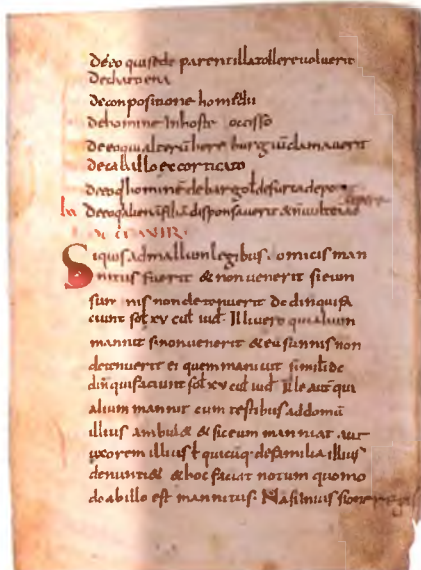 de eo qui se de parentilla tollere voluerit
de charoena
de conpositione homicidii
de homine In hoste occisso
de eo qui alterum here burgium clamaverit
de caballo excorticato
de eo q homine de bargo t de furca depo
de eo q alienā filiā disponsaverit &
Siquis ad mallum legibus omicis man
nitus fuerit & non venerit si eum
sun nis non detenuerit dc din qui fa
ciunt sol xv cul iud Ille vero qui alium
mannit si non venerit & eu sunnis non
detenuerit ei quem manuit simili dc
din qui faciunt sol xv cul iud ille aut qui
alium mannit cum testibus ad domū
illius ambul& & sic eum manniat aut
uxorem illius t quicūq de familia illius
denunti& & hoc faciat notum quomo
do ab illo est mannitus. Nā si in ius sione